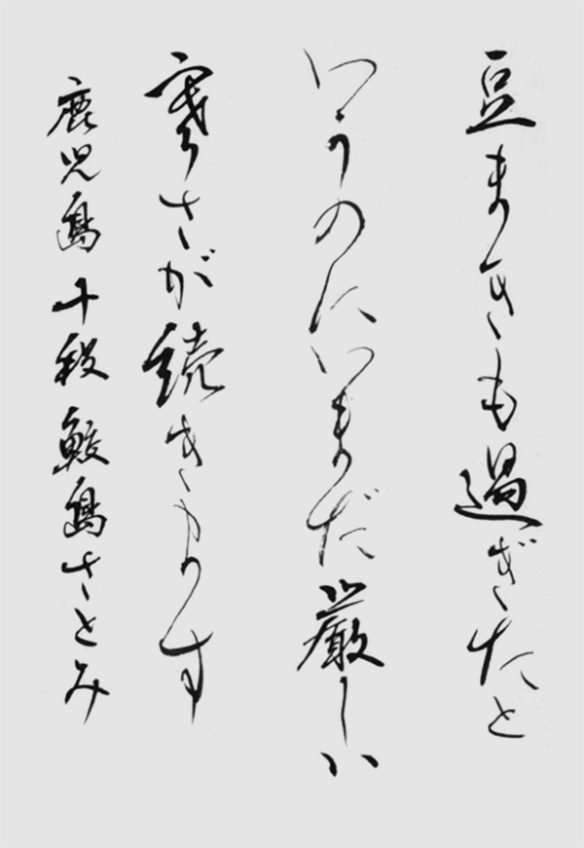 豆まきも過ぎたと
いうのにいまだ厳しい
寒さが続きます
鹿児島 十段 鮫島さとみ